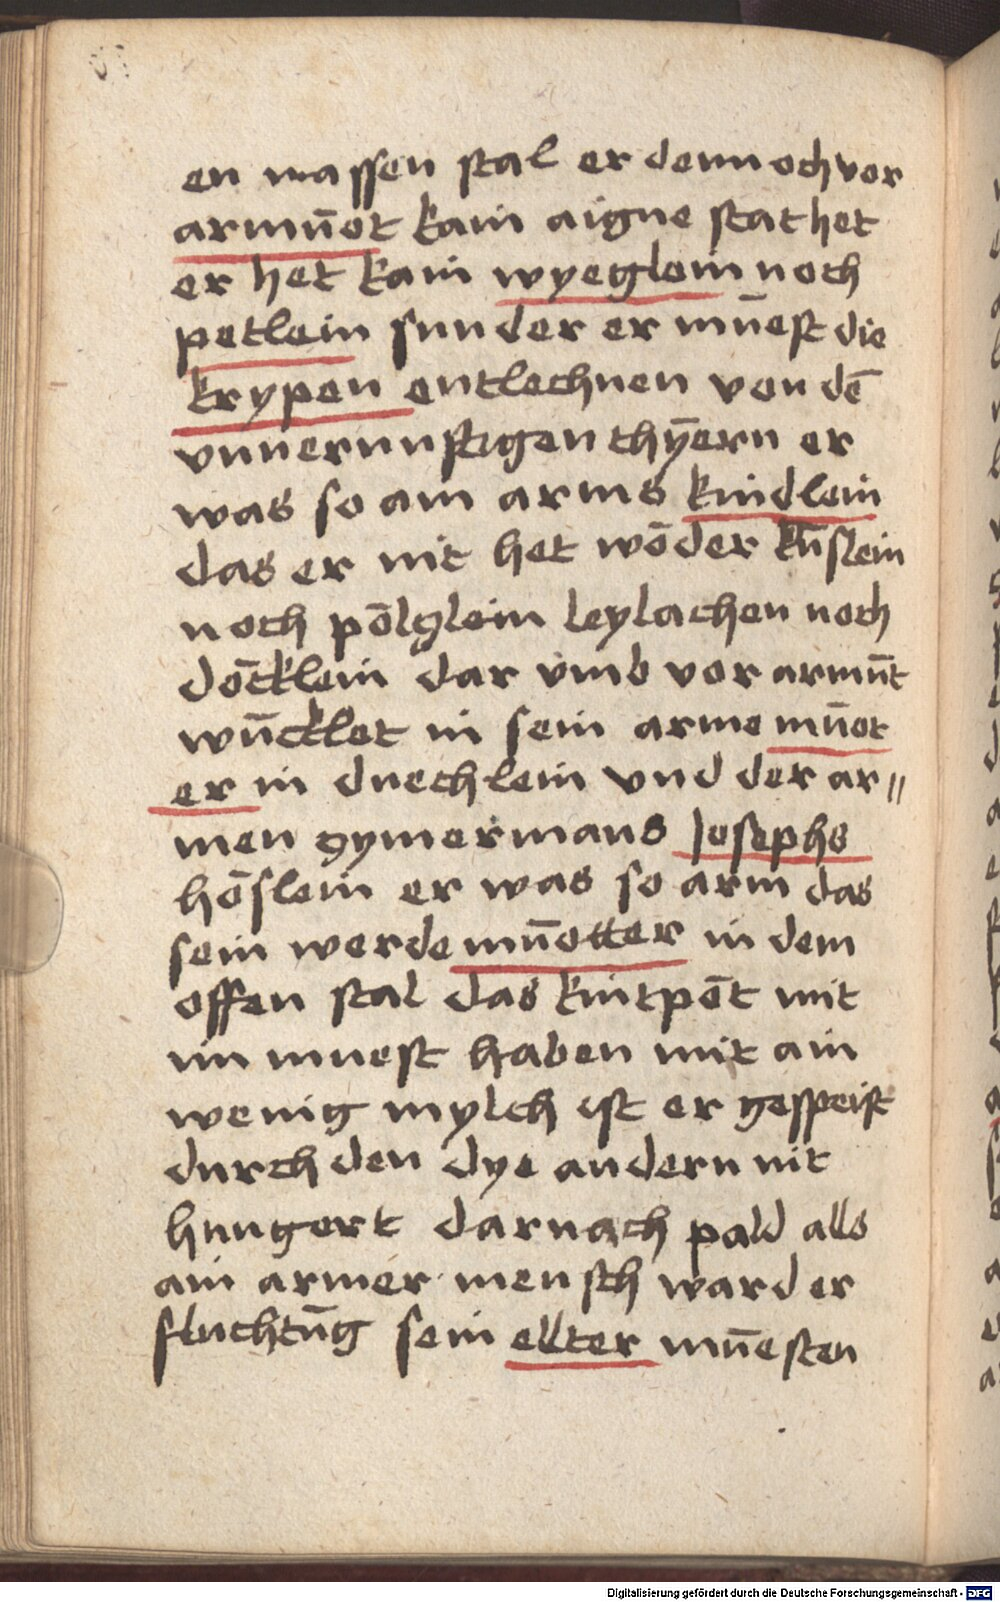 en massen stal er dennoch vor
armu̅et kain aigne stat het
er het kain wyeglein noch
petlein sunder er mu̅est die
krypen entlechnen von de̅
vnnernunftigen thy̅ern er
was so ain arms kindlein
das er nit het wo̅der ku̅slein
noch po̅lglein leylachen noch
do̅cklein dar vmb vor armu̅t
wu̅cklet in sein arme mu̅et
er in duechlein vnd der ar〃
men zymermans Josephs
ho̅slein er was so arm das
sein werde mu̅etter in dem
offen stal das kintpo̅t mit
im muest haben mit ain
wenig mylch ist er gespeist
durch den dye andern nit
hungert darnach pald alls
ain armer mensch ward er
fluchtu̅g sein ellter mu̅esten
Digitalisierung gefördert durch die Deutsche Forschungsgemeinschaft - DFG